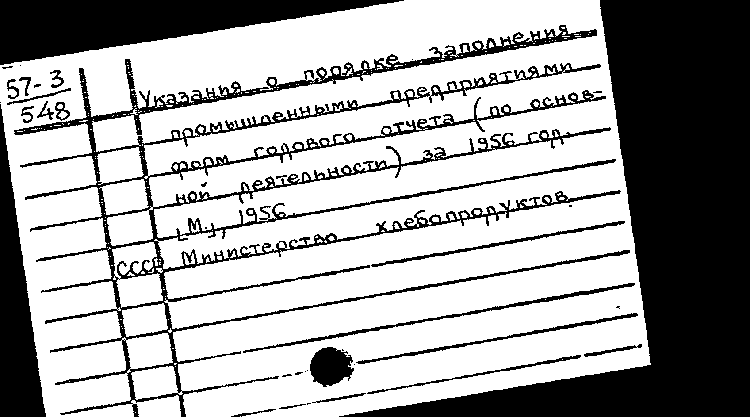 57-3
548
Указания о порядке заполнения
промышленными предприятиями
форм годового отчета (по основ-
ной деятельности) за 1956 год.
[М.], 1956.
СССР Министерство хлебопродуктов.